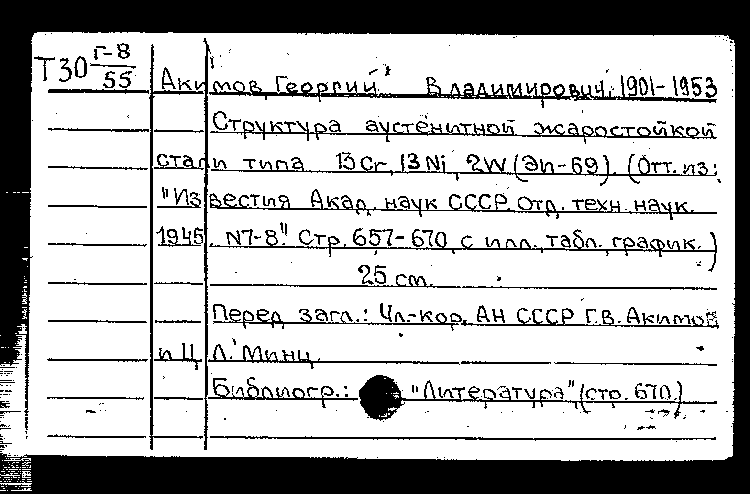 Т30 Г-8
55
Акимов, Георгий Владимирович, 1901-1953
Структура аустенитной жаростойкой
стали типа 13Cr, 13Ni, 2W (Эи-69). (Отт. из:
"Известия Акад. наук СССР. Отд. техн. наук.
1945, N7-8". Стр. 657-670, с илл., табл., график.)
25 cm.
Перед загл.: Чл-кор. АН СССР Г.В. Акимов
и Ц. Л. Минц.
Библиогр.: "Литература", (стр. 670.)